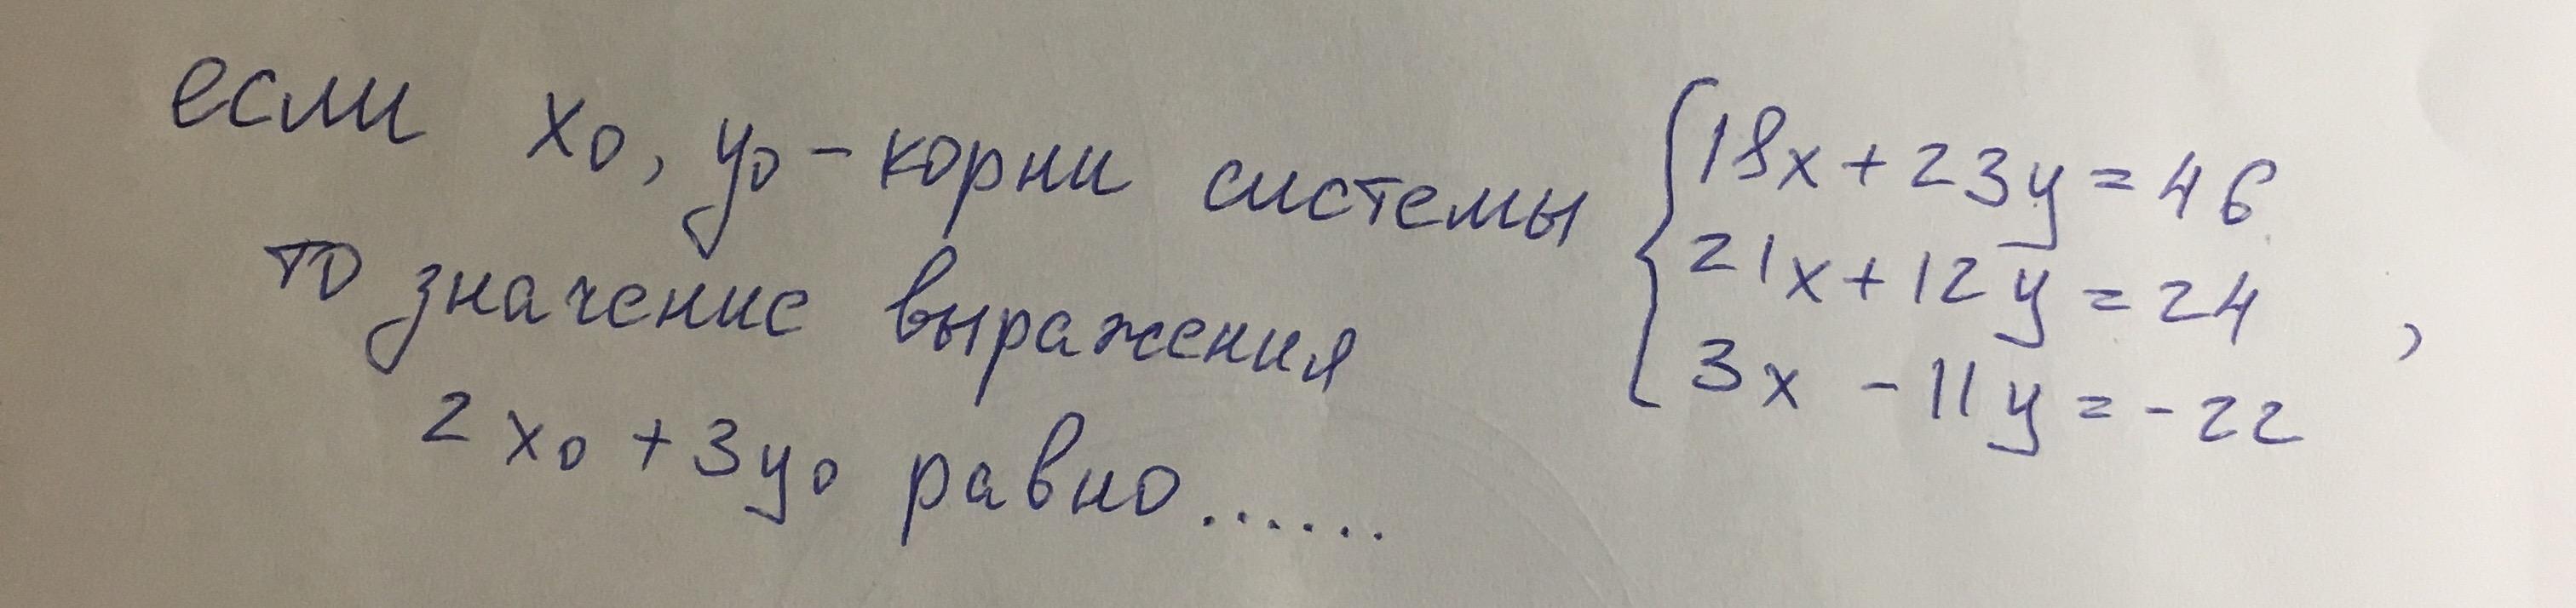 если x₀, y₀ - корни системы { 18x + 23y = 46
21x + 12y = 24
3x - 11y = -22 ,
то значение выражения
2x₀ + 3y₀ равно......